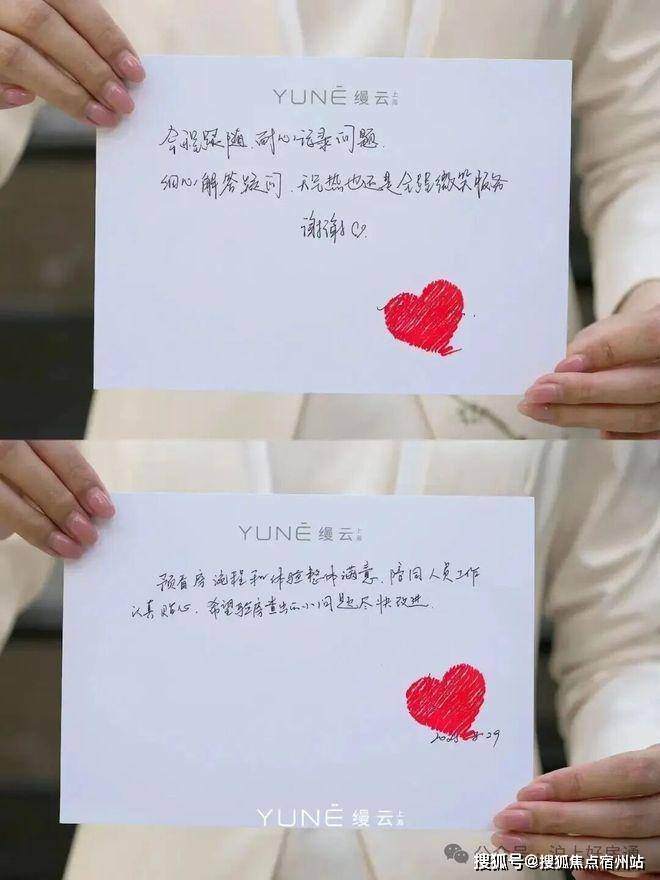 YUNĒ 缦云 上海
全程跟随、耐心记录问题.
细心解答疑问、天气热也还是全程微笑服务
谢谢♡.
YUNĒ 缦云 上海
预看房流程和体验整体满意、陪同人员工作
认真贴心.希望验房查出的小问题尽快改进.
YUNĒ 缦云 上海
公众号·沪上好房通
搜狐号@搜狐焦点宿州站